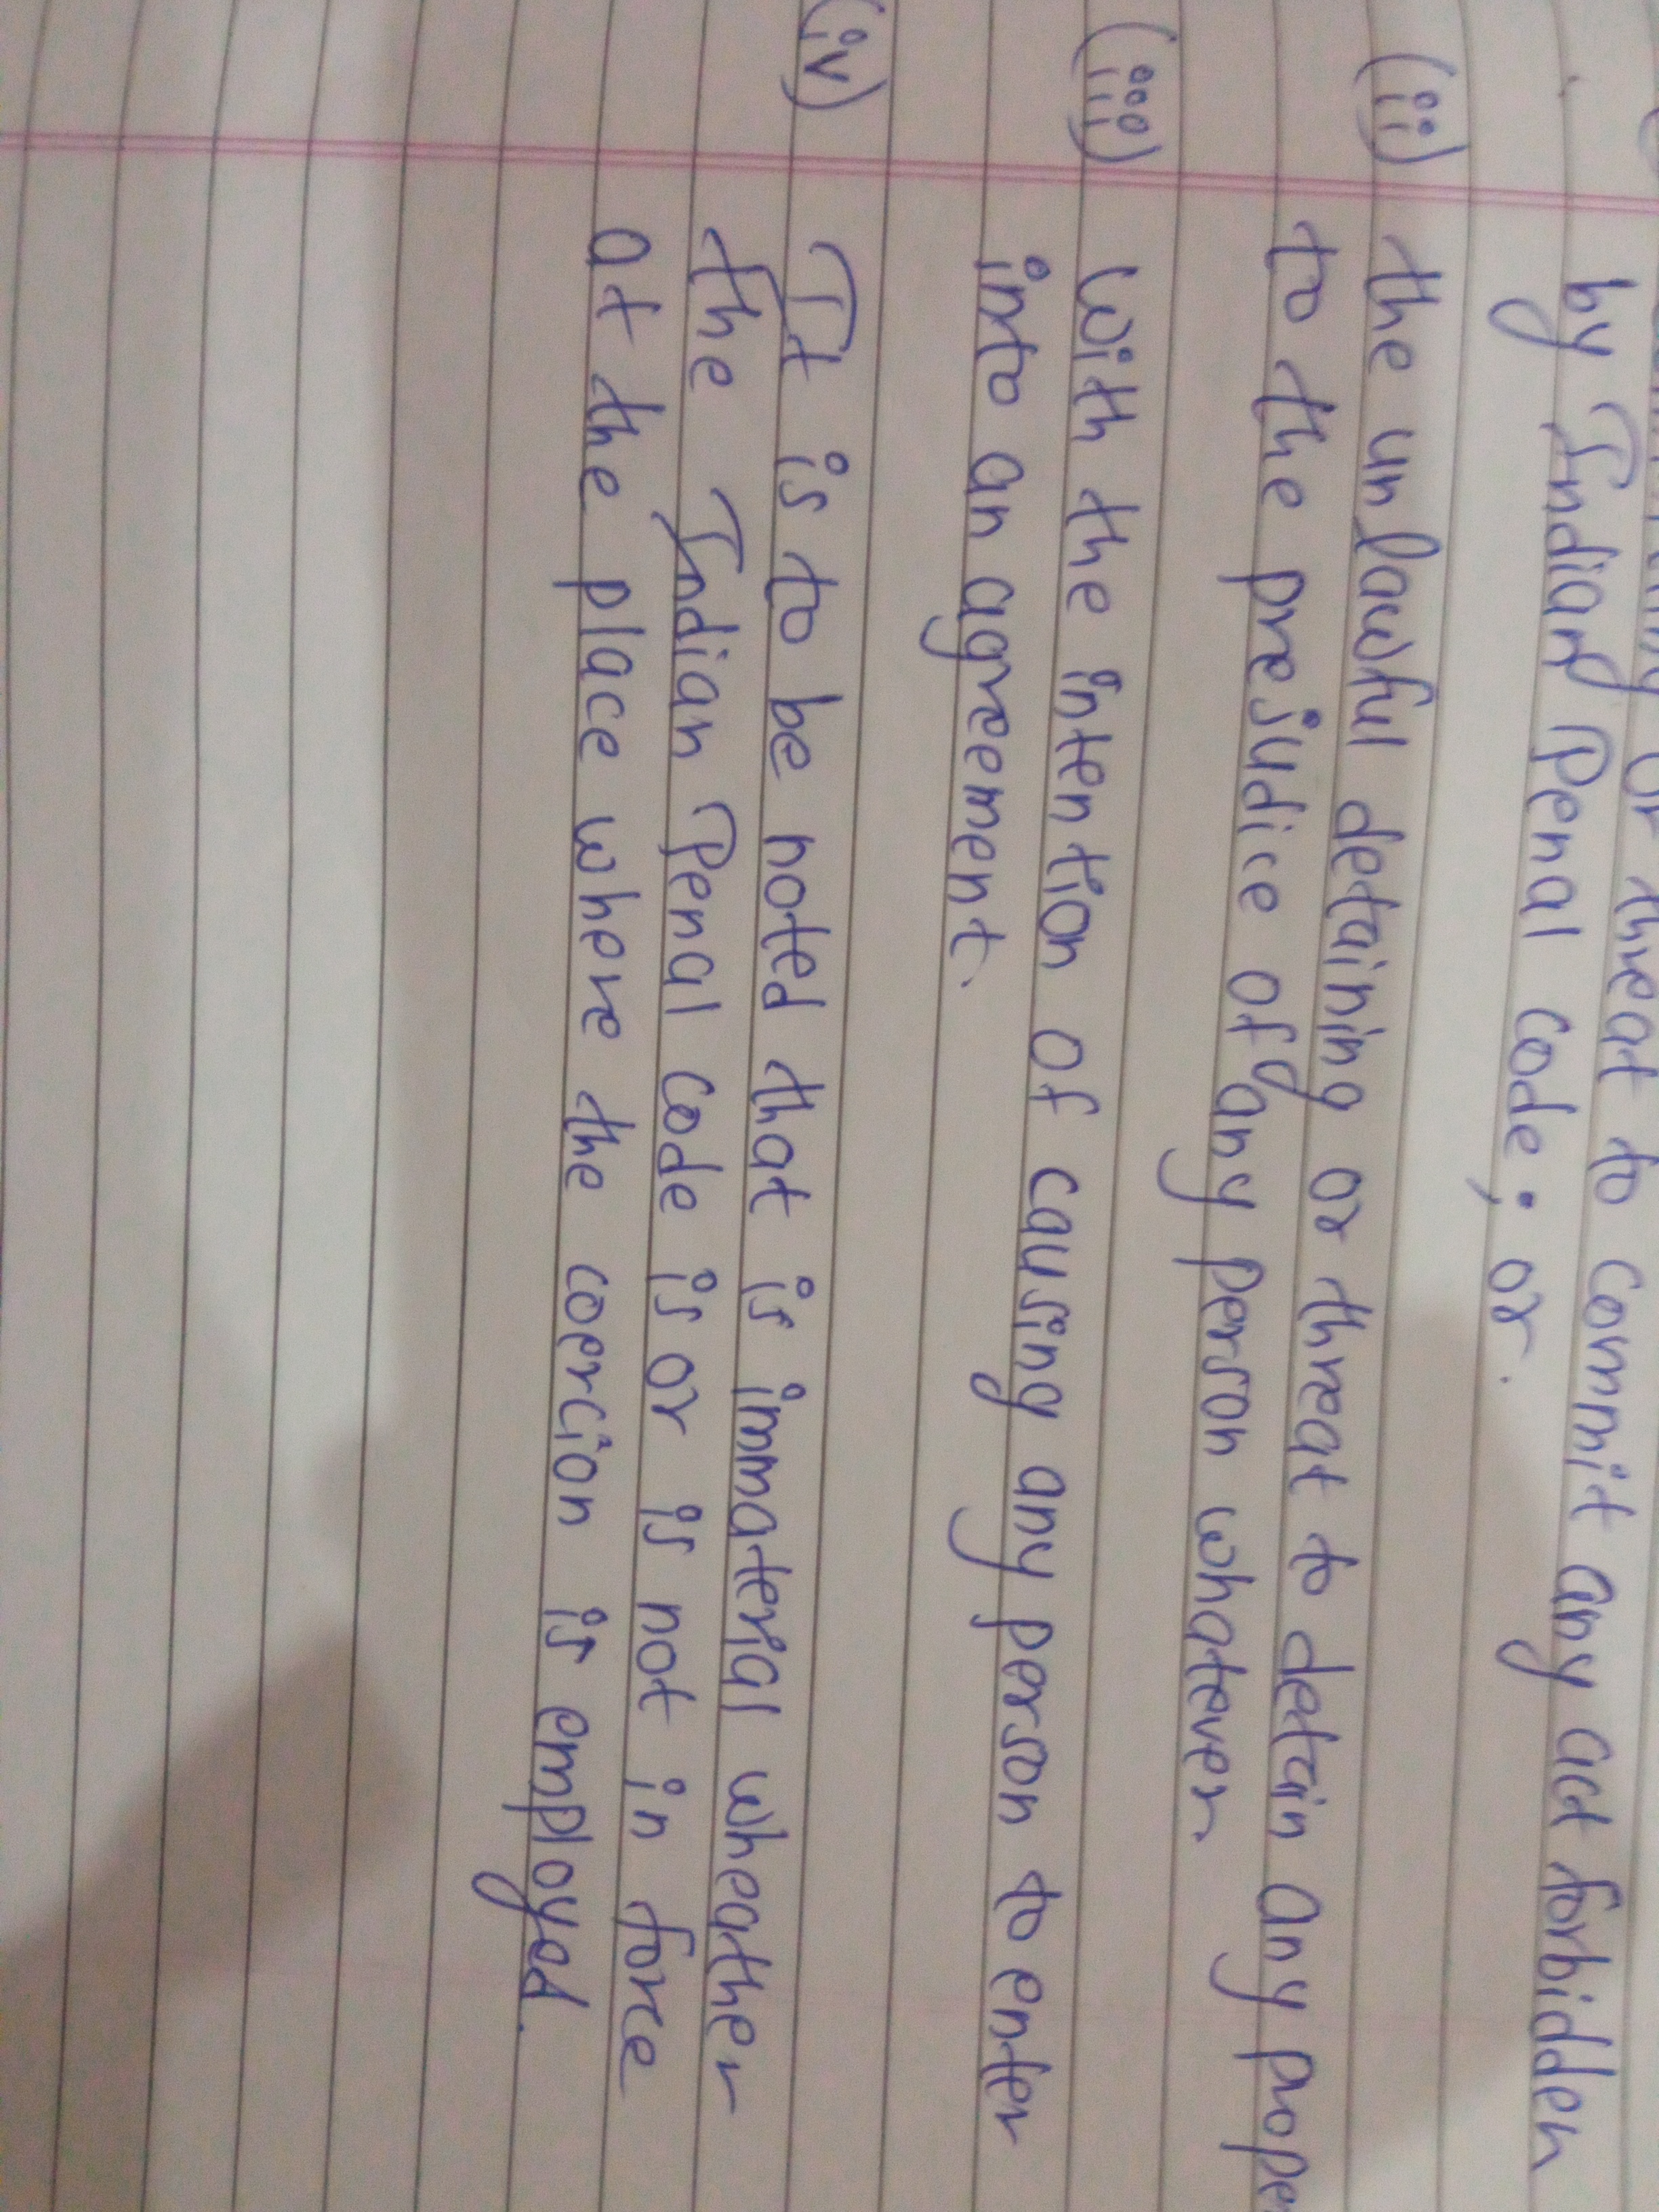 or threat to commit any act forbidden
by Indian Penal code; or.
(ii) the unlawful detaining or threat to detain any
to the prejudice of any person whatever.
(iii) with the intention of causing any person to enter
into an agreement.
(iv) It is to be noted that is immaterial wheather
the Indian Penal code is or is not in force
at the place where the coercion is employed.